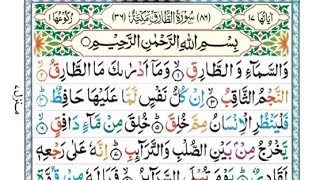 اٰيَاتُهَا ١٧ (٨٦) سُوْرَةُ الطَّارِقِ مَكِّيَّةٌ (٣٦) رُكُوْعُهَا ١
بِسْمِ اللّٰهِ الرَّحْمٰنِ الرَّحِيْمِ
وَالسَّمَآءِ وَالطَّارِقِ ۙ﴿١﴾ وَمَآ اَدْرٰىكَ مَا الطَّارِقُ ۙ﴿٢﴾
النَّجْمُ الثَّاقِبُ ۙ﴿٣﴾ اِنْ كُلُّ نَفْسٍ لَّمَّا عَلَيْهَا حَافِظٌ ؕ﴿٤﴾
فَلْيَنْظُرِ الْاِنْسَانُ مِمَّ خُلِقَ ؕ﴿٥﴾ خُلِقَ مِنْ مَّآءٍ دَافِقٍ ۙ﴿٦﴾
يَّخْرُجُ مِنْۢ بَيْنِ الصُّلْبِ وَالتَّرَآئِبِ ؕ﴿٧﴾ اِنَّهٗ عَلٰى رَجْعِهٖ
لَقَادِرٌ ؕ﴿٨﴾ يَوْمَ تُبْلَى السَّرَآئِرُ ۙ﴿٩﴾ فَمَا لَهٗ مِنْ قُوَّةٍ